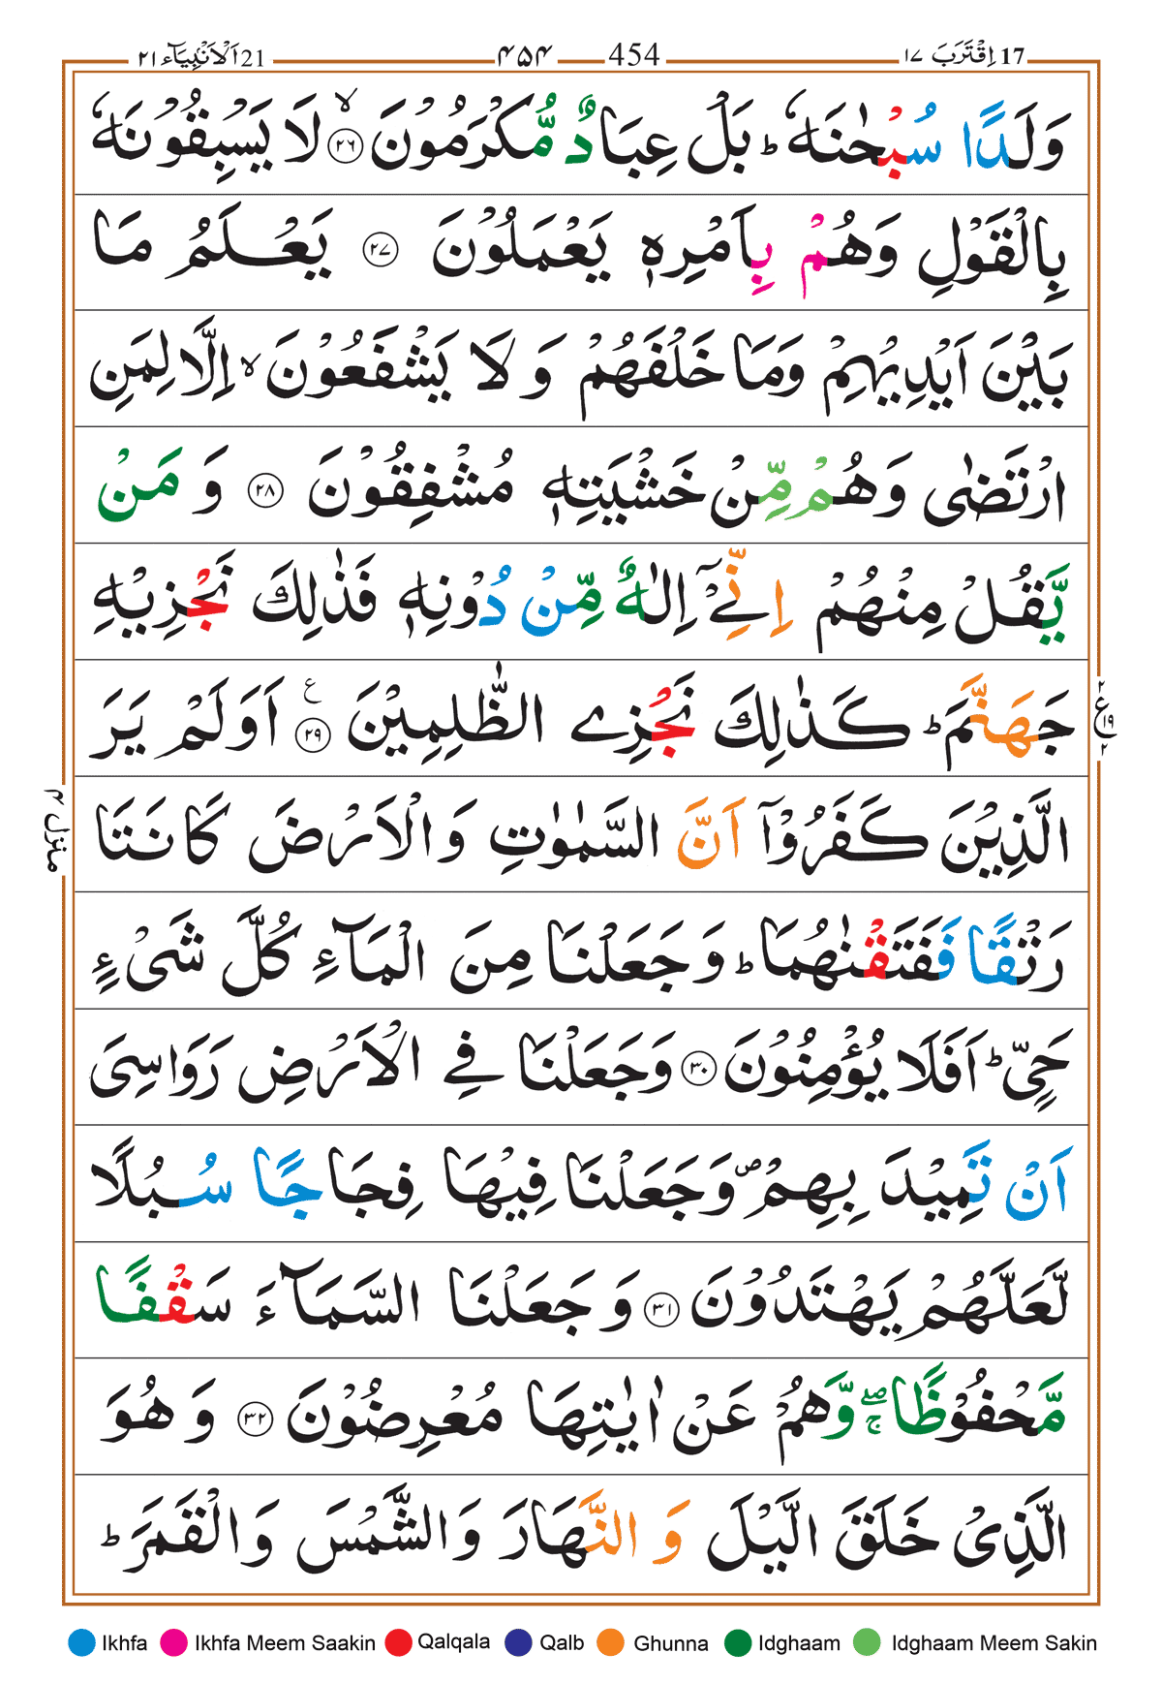 17 اِقْتَرَبَ ١٧ 454 ۴۵۴ 21 اَلْاَنْۢبِيَآء ٢١
وَلَدًا سُبْحٰنَهٗ ؕ بَلْ عِبَادٌ مُّكْرَمُوْنَ ۙ‏﴿۲۶﴾ لَا يَسْبِقُوْنَهٗ
بِالْقَوْلِ وَهُمْ بِاَمْرِهٖ يَعْمَلُوْنَ ﴿۲۷﴾ يَعْلَمُ مَا
بَيْنَ اَيْدِيْهِمْ وَمَا خَلْفَهُمْ وَلَا يَشْفَعُوْنَ ۙ اِلَّا لِمَنِ
ارْتَضٰى وَهُمْ مِّنْ خَشْيَتِهٖ مُشْفِقُوْنَ ﴿۲۸﴾ وَمَنْ
يَّقُلْ مِنْهُمْ اِنِّىْۤ اِلٰهٌ مِّنْ دُوْنِهٖ فَذٰلِكَ نَجْزِيْهِ
جَهَنَّمَ ؕ كَذٰلِكَ نَجْزِى الظّٰلِمِيْنَ ﴿۲۹﴾ اَوَلَمْ يَرَ
الَّذِيْنَ كَفَرُوْۤا اَنَّ السَّمٰوٰتِ وَالْاَرْضَ كَانَتَا
رَتْقًا فَفَتَقْنٰهُمَا ؕ وَجَعَلْنَا مِنَ الْمَآءِ كُلَّ شَىْءٍ
حَىٍّ ؕ اَفَلَا يُؤْمِنُوْنَ ﴿۳۰﴾ وَجَعَلْنَا فِى الْاَرْضِ رَوَاسِىَ
اَنْ تَمِيْدَ بِهِمْ ۪ وَجَعَلْنَا فِيْهَا فِجَاجًا سُبُلًا
لَّعَلَّهُمْ يَهْتَدُوْنَ ﴿۳۱﴾ وَجَعَلْنَا السَّمَآءَ سَقْفًا
مَّحْفُوْظًا ۖۚ وَّهُمْ عَنْ اٰيٰتِهَا مُعْرِضُوْنَ ﴿۳۲﴾ وَهُوَ
الَّذِىْ خَلَقَ الَّيْلَ وَالنَّهَارَ وَالشَّمْسَ وَالْقَمَرَ ؕ
٢ ع ١٩ ٢
منزل ۴
Ikhfa Ikhfa Meem Saakin Qalqala Qalb Ghunna Idghaam Idghaam Meem Sakin